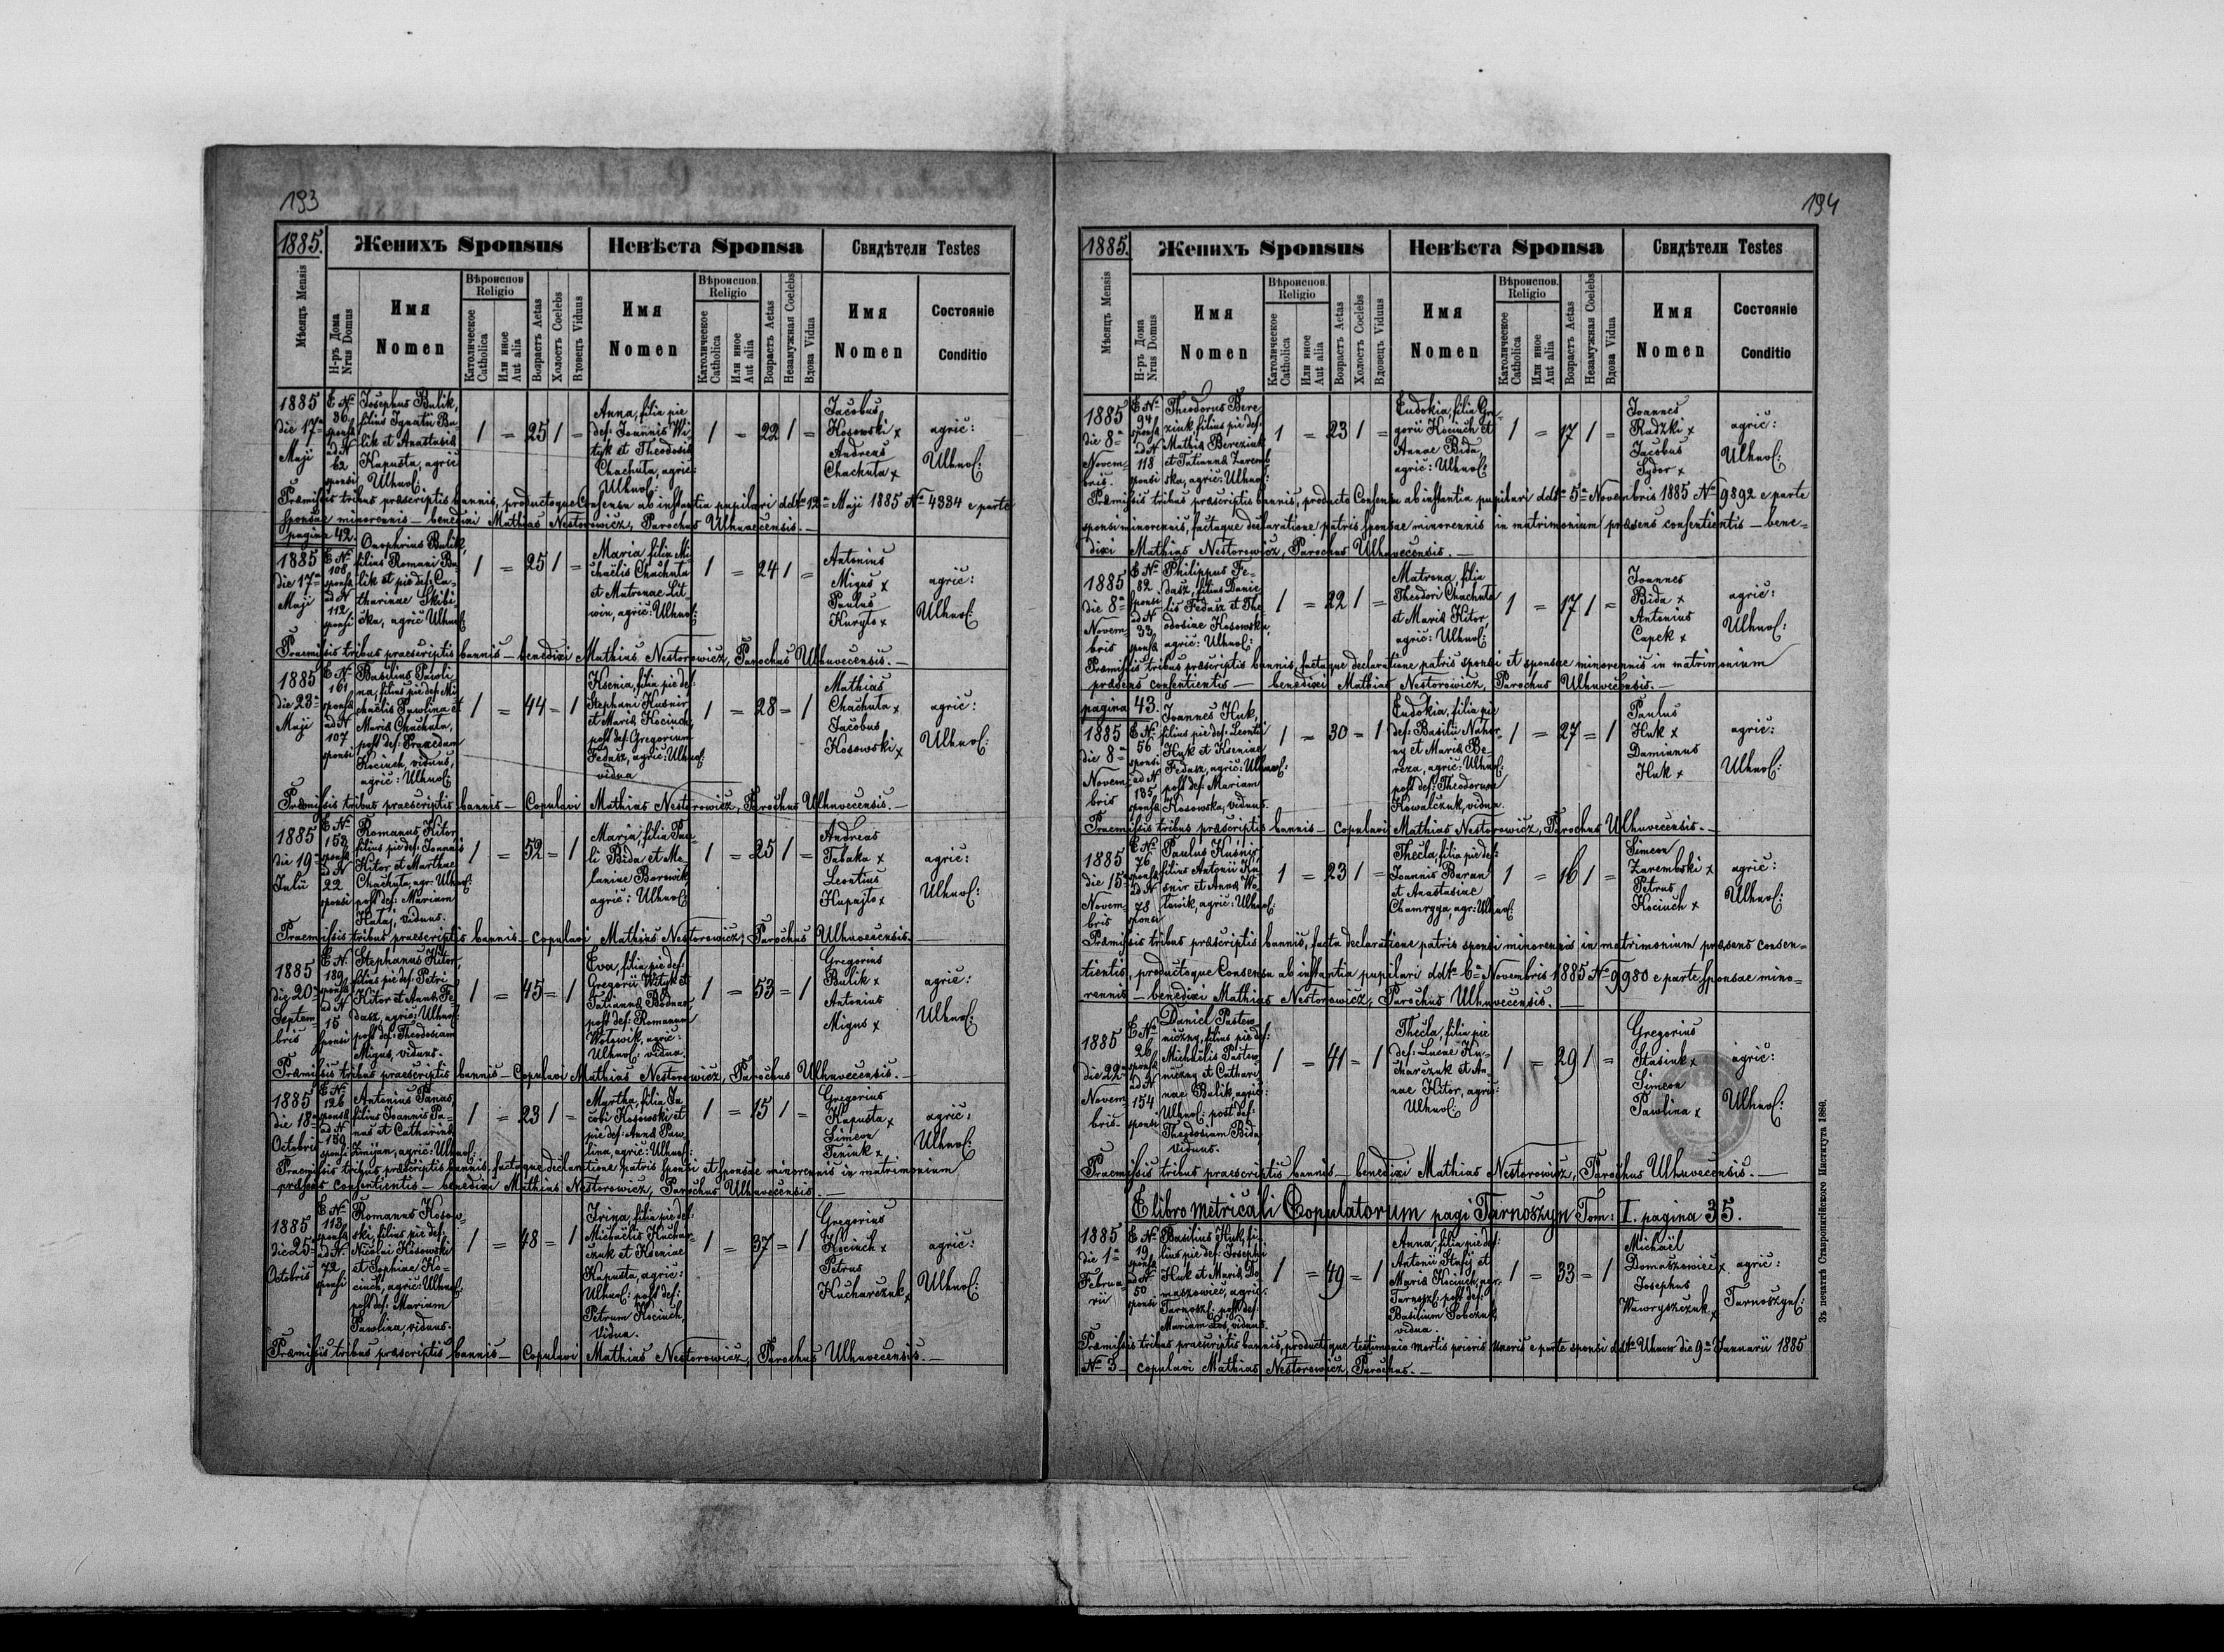 193
1885.
Женихъ Sponsus
Невѣста Sponsa
Свидѣтели Testes
Мѣсяцъ Mensis
Н-ръ Дома
Nrus Domus
Имя
Nomen
Вѣроиспов.
Religio
Католическое
Catholica
Или иное
Aut alia
Возрастъ Aetas
Холостъ Coelebs
Вдовецъ Viduus
Имя
Nomen
Вѣроиспов.
Religio
Католическое
Catholica
Или иное
Aut alia
Возрастъ Aetas
Незамужная Coelebs
Вдова Vidua
Имя
Nomen
Состояніе
Conditio
1885
die 17ª
Maji
E Nº
36
sponsæ
ad N
62
sponsi
Josephus Bulik,
filius Ignatii Bu-
lik et Anastasiæ
Kapusta, agric:
Ulhnoſ:
1 = 25 1 =
Anna, filia pie
def: Joannis Wi-
tyk et Theodosiæ
Chachuta, agric:
Ulhnoſ:
1 = 22 1 =
Jacobus
Kosowski x
Andreas
Chachuta x
agric:
Ulhnoſ:
Præmissis tribus præscriptis bannis, productoque Consensu ab instantia pupilari ddto 12ª Maji 1885 Nº 4334 e parte
sponsae minorennis – benedixi Mathias Nestorowicz, Parochus Ulhuvecensis. –
pagina 42.
1885
die 17ª
Maji
E Nº
108
sponsæ
ad N
112
sponsi
Onophrius Bulik,
filius Romani Bu-
lik et pie def: Ca-
tharinae Skibi-
ska, agric: Ulhnoſ:
1 = 25 1 =
Maria, filia Mi-
chaëlis Chachuta
et Matronae Lit-
win, agric: Ulhnoſ:
1 = 24 1 =
Antonius
Migus x
Paulus
Kuryło x
agric:
Ulhnoſ:
Praemissis tribus praescriptis bannis – benedixi Mathias Nestorowicz, Parochus Ulhuvecensis. –
1885
die 23ª
Maji
E Nº
161
sponsæ
ad N
107
sponsi
Basilius Pawli-
na, filius pie def: Mi-
chaëlis Pawlina et
Mariæ Chachuta,
post def: Praxedam
Kociuch, viduus,
agric: Ulhnoſ:
1 = 44 = 1
Ksenia, filia pie def:
Stephani Kusnir
et Mariæ Kociuch,
post def: Gregorium
Fedasz, agric: Ulhnoſ:
vidua
1 = 28 = 1
Mathias
Chachuta x
Jacobus
Kosowski x
agric:
Ulhnoſ:
Præmissis tribus praescriptis bannis – Copulavi Mathias Nestorowicz, Parochus Ulhuvecensis. –
1885
die 19ª
Julii
E Nº
153
sponsæ
ad N
22
sponsi
Romanus Kitor
filius pie def: Joannis
Kitor et Marthae
Chachuta, agr: Ulhnoſ:
post def: Mariam
Hataj, viduus.
1 = 52 = 1
Maria, filia Pau-
li Bida et Me-
laniae Borowik,
agric: Ulhnoſ:
1 = 25 1 =
Andreas
Tabaka x
Leontius
Kupajło x
agric:
Ulhnoſ:
Praemissis tribus praescriptis bannis – Copulavi Mathias Nestorowicz, Parochus Ulhuvecensis. –
1885
die 20ª
Septem-
bris
E N:
189
sponsæ
ad N
15
sponsi
Stephanus Kitor,
filius pie def: Petri
Kitor et Annæ Fe-
dasz, agric: Ulhnoſ:
post def: Theodosiam
Migus, viduus.
1 = 45 = 1
Eva, filia pie def:
Gregorii Wityk et
Tatiannæ Bodnar
post def: Romanum
Wolowik, agric:
Ulhnoſ: vidua.
1 = 53 = 1
Gregorius
Bulik x
Antonius
Migus x
agric:
Ulhnoſ:
Præmissis tribus praescriptis bannis – Copulavi Mathias Nestorowicz, Parochus Ulhuvecensis. –
1885
die 18ª
Octobris
E Nº
126
sponsæ
ad N
159
sponsi
Antonius Panas,
filius Joannis Pa-
nas et Catharinæ
Zmijan, agric: Ulhnoſ:
1 = 23 1 =
Myrtha, filia Ja-
cobi Kosowski et
pie def: Annæ Paw-
lina, agric: Ulhnoſ:
1 = 15 1 =
Gregorius
Kapusta x
Simeon
Feniuk x
agric:
Ulhnoſ:
Praemissis tribus præscriptis bannis, factaque declaratione patris sponsi et sponsae minorennis in matrimonium
præsens consentientis – benedixi Mathias Nestorowicz, Parochus Ulhuvecensis. –
1885
die 25ª
Octobris
E Nº
113
sponsæ
ad N:
72
sponsi
Romanus Kosow-
ski, filius pie def:
Nicolai Kosowski
et Sophiae Ko-
ciuch, agric: Ulhnoſ:
post def: Mariam
Pawlina, viduus.
1 = 48 = 1
Irina, filia pie def:
Michaëlis Kuchar-
czuk et Kseniae
Kapusta, agric:
Ulhnoſ: post def:
Petrum Kociuch,
vidua.
1 = 37 = 1
Gregorius
Kociuch x
Petrus
Kucharczuk x
agric:
Ulhnoſ:
Præmissis tribus præscriptis bannis – Copulavi Mathias Nestorowicz, Parochus Ulhuvecensis. –
194
1885.
Женихъ Sponsus
Невѣста Sponsa
Свидѣтели Testes
Мѣсяцъ Mensis
Н-ръ Дома
Nrus Domus
Имя
Nomen
Вѣроиспов.
Religio
Католическое
Catholica
Или иное
Aut alia
Возрастъ Aetas
Холостъ Coelebs
Вдовецъ Viduus
Имя
Nomen
Вѣроиспов.
Religio
Католическое
Catholica
Или иное
Aut alia
Возрастъ Aetas
Незамужная Coelebs
Вдова Vidua
Имя
Nomen
Состояніе
Conditio
1885
die 8ª
Novem-
bris.
E Nº
94
sponsæ
ad N
118
sponsi
Theodorus Bere-
ziuk, filius pie def:
Mathiæ Bereziuk
et Tatiannæ Zaremb-
ska, agric: Ulhnoſ:
1 = 23 1 =
Eudokia, filia Gre-
gorii Kociuch et
Annae Bida,
agric: Ulhnoſ:
1 = 17 1 =
Joannes
Radzki x
Jacobus
Sydor x
agric:
Ulhnoſ:
Præmissis tribus præscriptis bannis, producto Consensu ab instantia pupilari ddto 5ª Novembris 1885 Nº 9892 e parte
sponsi minorennis, factaque declaratione patris sponsae minorennis in matrimonium præsens consentientis – bene-
dixi Mathias Nestorowicz, Parochus Ulhuvecensis. –
1885
die 8ª
Novem-
bris
E Nº
82
sponsi
ad N
33
sponsæ
Philippus Fe-
dasz, filius Danie-
lis Fedasz et The-
odosiae Kosowska,
agric: Ulhnoſ:
1 = 22 1 =
Matrona, filia
Theodori Chachuta
et Mariæ Kitor,
agric: Ulhnoſ:
1 = 17 1 =
Joannes
Bida x
Antonius
Capek x
agric:
Ulhnoſ:
Præmissis tribus præscriptis bannis, factaque declaratione patris sponsi et sponsae minorennis in matrimonium
præsens consentientis – benedixi Mathias Nestorowicz, Parochus Ulhuvecensis. –
pagina 43.
1885
die 8ª
Novem-
bris
E Nº
56
sponsi
ad N
135
sponsæ
Joannes Huk,
filius pie def: Leontii
Huk et Kseniae
Fedasz, agric: Ulhnoſ:
post def: Mariam
Kosowska, viduus.
1 = 30 = 1
Eudokia, filia pie
def: Basilii Nahor-
ny et Mariæ Be-
reza, agric: Ulhnoſ:
post def: Theodorum
Kowalczuk, vidua.
1 = 27 = 1
Paulus
Huk x
Damianus
Huk x
agric:
Ulhnoſ:
Praemissis tribus præscriptis bannis – Copulavi Mathias Nestorowicz, Parochus Ulhuvecensis. –
1885
die 15ª
Novem-
bris
E Nº
76
sponsæ
ad N
78
sponsi
Paulus Kusnir,
filius Antonii Ku-
snir et Annæ Wo-
lowik, agric: Ulhnoſ:
1 = 23 1 =
Thecla, filia pie def:
Joannis Baran
et Anastasiae
Chamryga, agr: Ulhnoſ:
1 = 16 1 =
Simeon
Zarembski x
Petrus
Kociuch x
agric:
Ulhnoſ:
Præmissis tribus præscriptis bannis, facta declaratione patris sponsi minorennis in matrimonium præsens consen-
tientis, productoque Consensu ab instantia pupilari ddto 6ª Novembris 1885 Nº 9980 e parte sponsae mino-
rennis – benedixi Mathias Nestorowicz, Parochus Ulhuvecensis. –
1885
die 22ª
Novem-
bris
E Nº
26
sponsæ
ad N
154
sponsi
Daniel Pastew-
niczny, filius pie def:
Michaëlis Pastew-
niczny et Cathari-
nae Bulik, agric:
Ulhnoſ: post def:
Theodosiam Bida,
viduus.
1 = 41 = 1
Thecla, filia pie
def: Lucae Ku-
charczuk et An-
nae Kitor, agric:
Ulhnoſ:
1 = 29 1 =
Gregorius
Stasiuk x
Simeon
Pawlina x
agric:
Ulhnoſ:
Praemissis tribus praescriptis bannis – benedixi Mathias Nestorowicz, Parochus Ulhuvecensis. –
E libro metricali Copulatorum pagi Tarnoszyn Tom: I. pagina 35.
1885
die 1ª
Februa-
rii
E Nº
19
sponsæ
ad N
50
sponsi
Basilius Huk, fi-
lius pie def: Josephi
Huk et Mariæ Do-
maszowiec, agric:
Tarnoszſ: post def:
Mariam Łos, viduus.
1 = 49 = 1
Anna, filia pie def:
Antonii Stasij et
Mariæ Kociuch, agr:
Tarnoszſ: post def:
Basilium Sobczuk,
vidua.
1 = 33 = 1
Michaël
Domaszowiec x
Josephus
Wawryszczuk x
agric:
Tarnoszynſ:
Præmissis tribus praescriptis bannis, productoque testimonio mortis prioris uxoris e parte sponsi ddto Uhnow die 9ª Januarii 1885
Nº 3 – copulavi Mathias Nestorowicz, Parochus. –
Зъ печатнѣ Ставропигійского Института 1880.